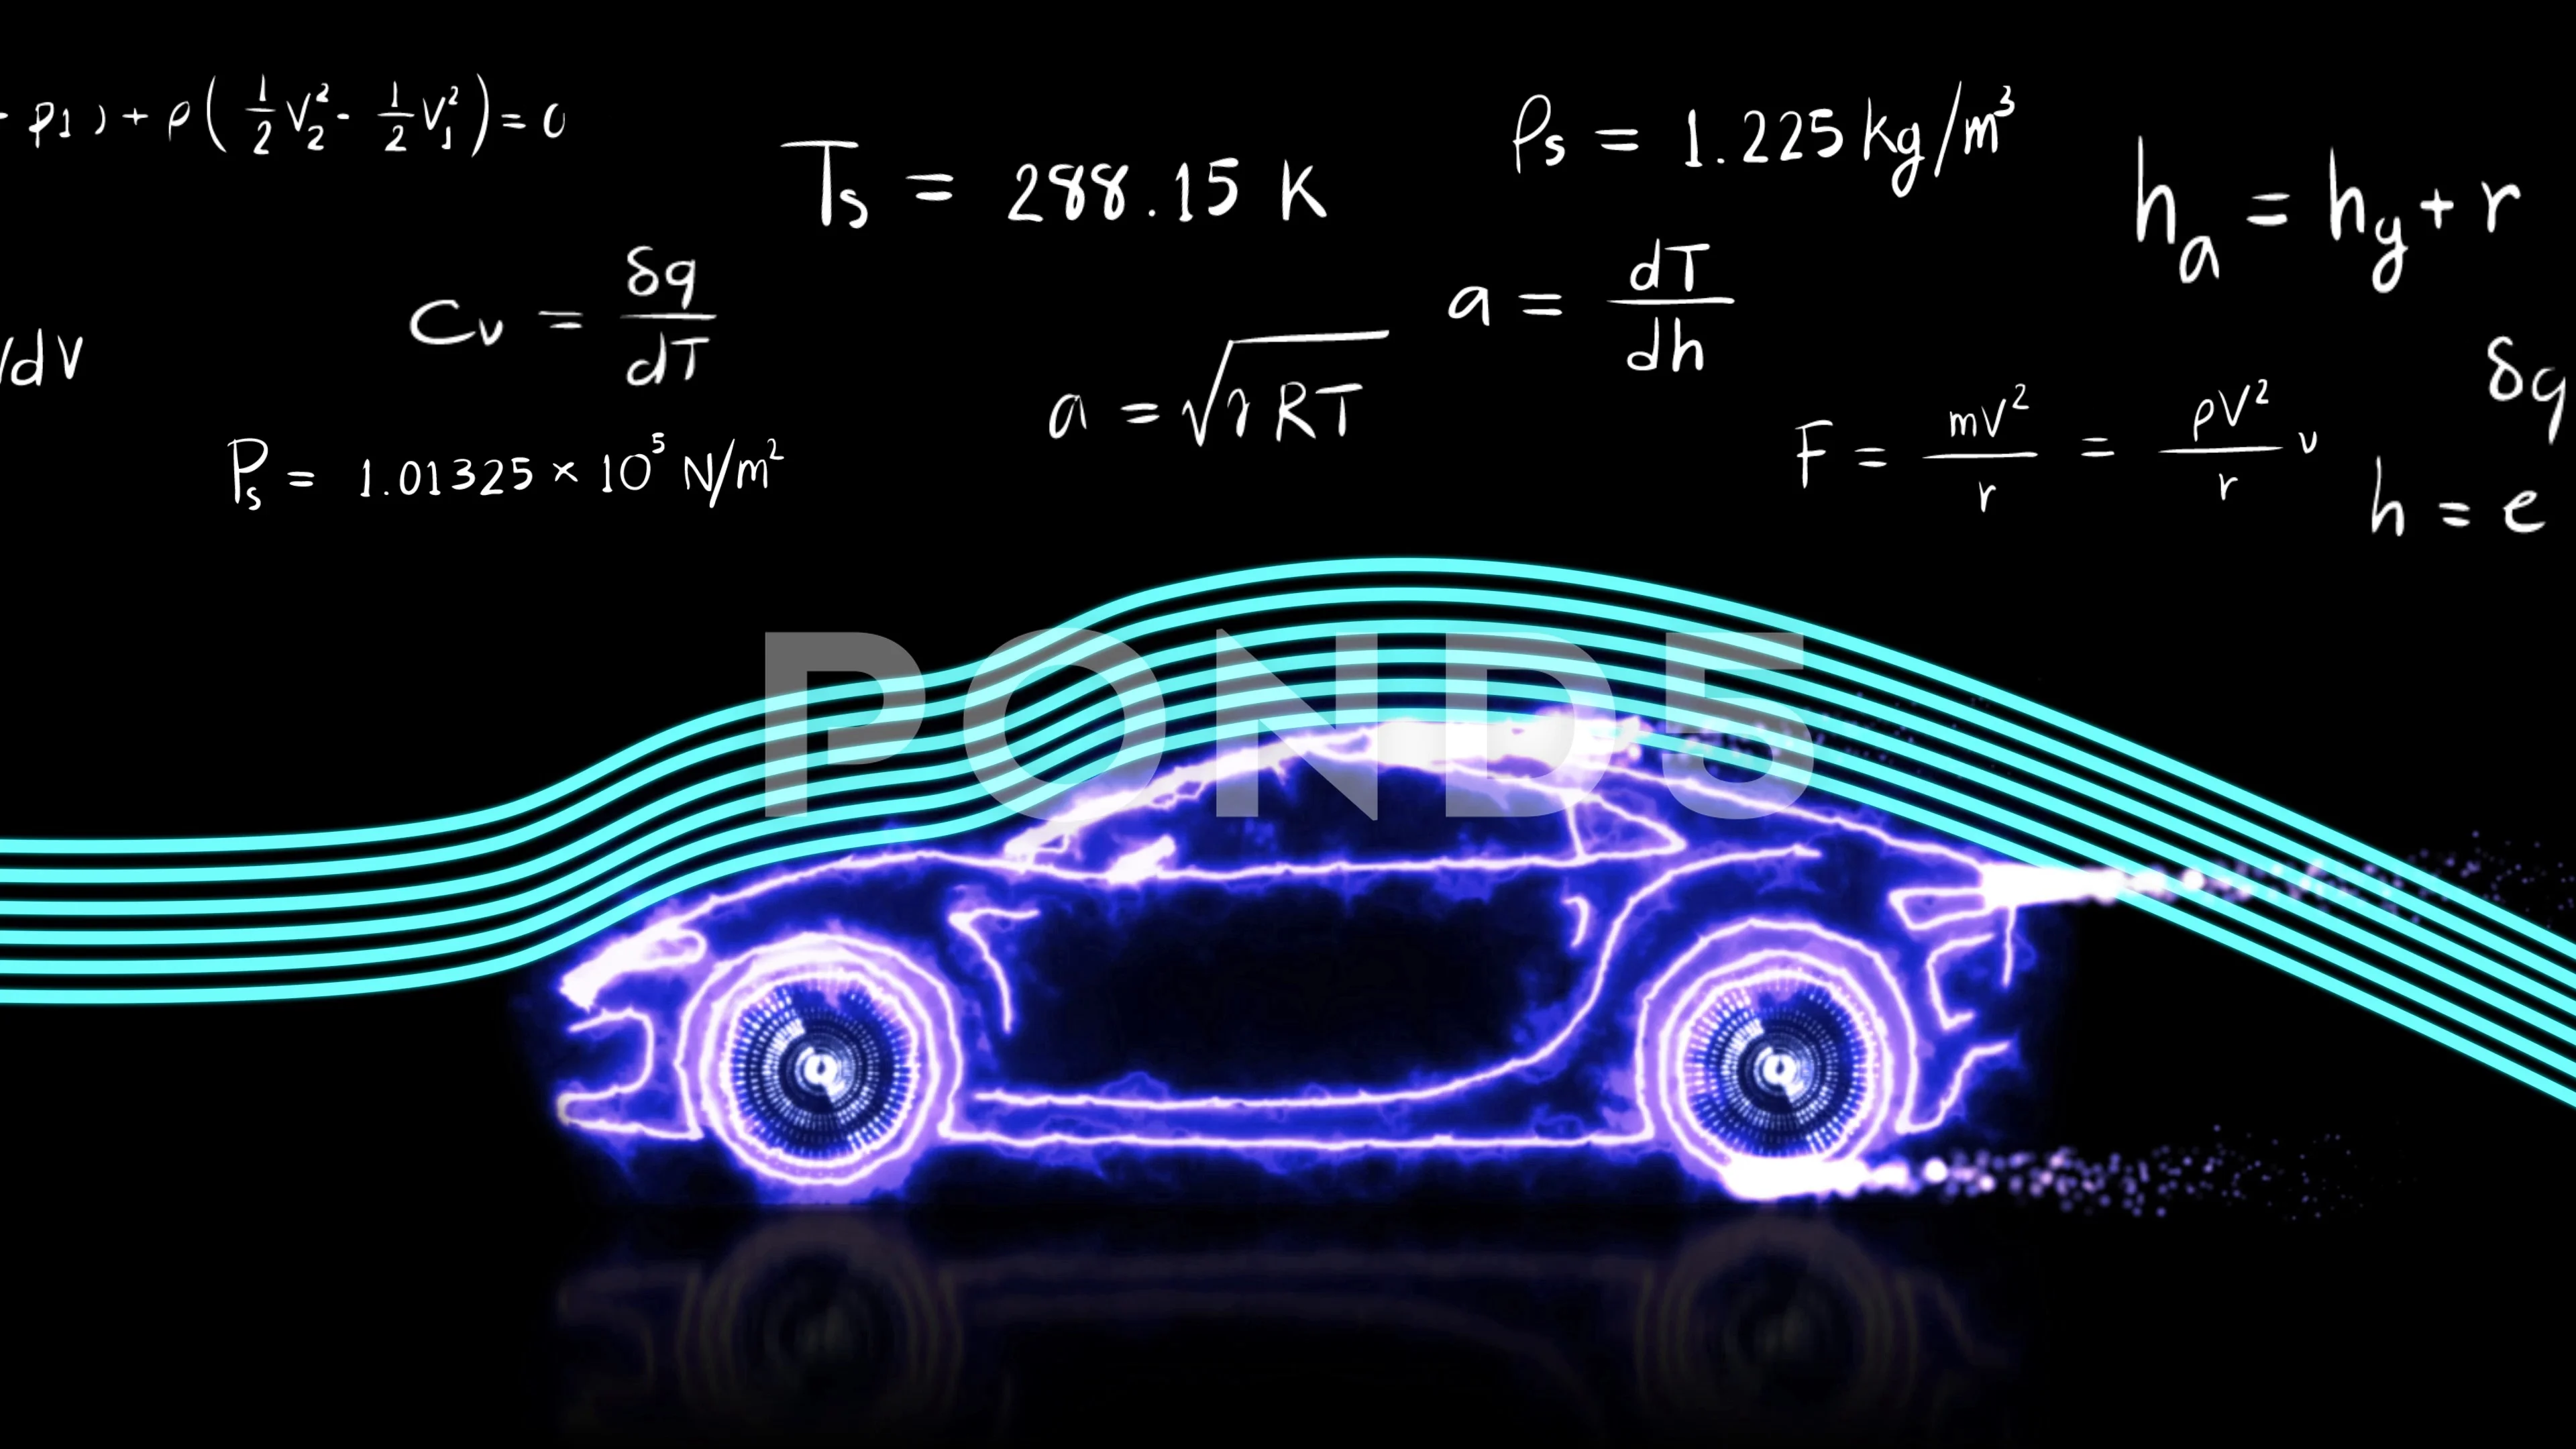 p1) + ρ(1/2 V₂² - 1/2 V₁²) = 0
Tₛ = 288.15 K
ρₛ = 1.225 kg/m³
hₐ = h_y + r
Cv = δq/dT
a = dT/dh
/dV
a = √γRT
δq
Pₛ = 1.01325 × 10⁵ N/m²
F = mV²/r = ρV²/r v
h = e
POND5